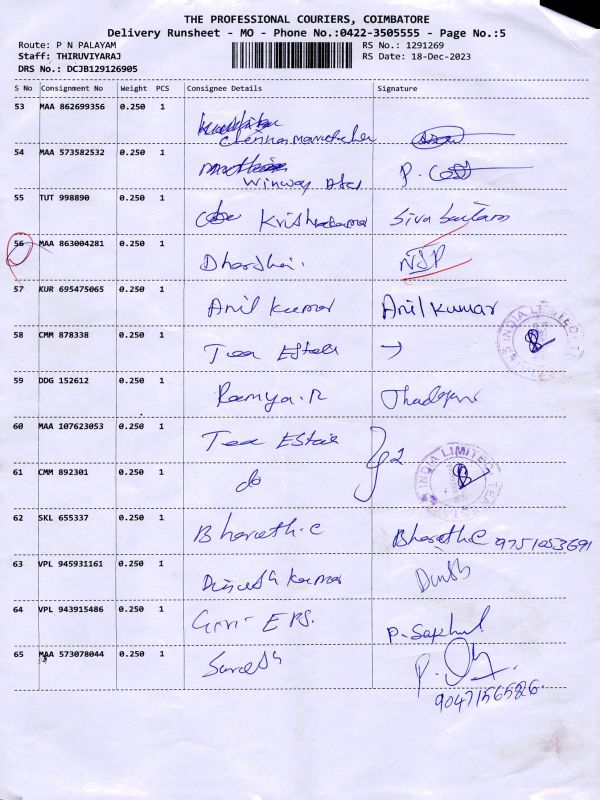 THE PROFESSIONAL COURIERS, COIMBATORE
Delivery Runsheet - MO - Phone No.:0422-3505555 - Page No.:5
Route: P N PALAYAM RS No.: 1291269
Staff: THIRUVIYARAJ RS Date: 18-Dec-2023
DRS No.: DCJB129126905
S No Consignment No Weight PCS Consignee Details Signature
53 MAA 862699356 0.250 1
54 MAA 573582532 0.250 1
Winway P.
55 TUT 998890 0.250 1
56 MAA 863004281 0.250 1
NJP
57 KUR 695475065 0.250 1
Anil Kumar Anil Kumar
58 CMM 878338 0.250 1
Tea Estate
INDIA LIMITED
59 DDG 152612 0.250 1
Ramya.R
60 MAA 107623053 0.250 1
Tea Estate
INDIA LIMITED
61 CMM 892301 0.250 1
do
62 SKL 655337 0.250 1
Bharath.C Bharath.C 9751053691
63 VPL 945931161 0.250 1
Dinesh Kumar
64 VPL 943915486 0.250 1
65 MAA 573078044 0.250 1
Suresh
9047156526